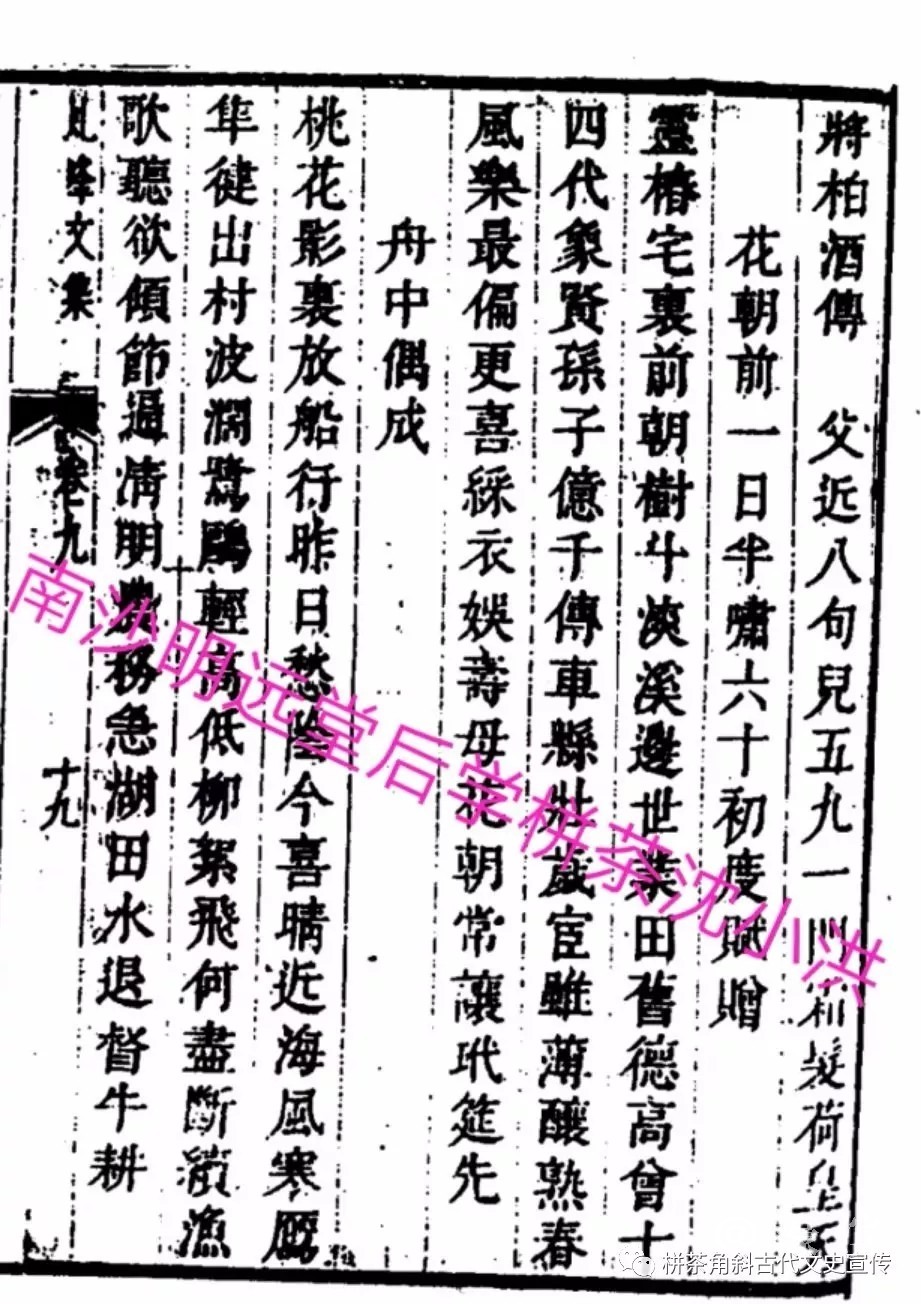 將柏酒傳　父近八旬兒五九一門荷皇天
花朝前一日半嘯六十初度賦贈
靈椿宅裏前朝樹斗淡溪邊世業田舊德高曾十
四代象賢孫子億千傳車縣壯歲宦雖薄釀熟春
風樂最偏更喜綵衣娛壽母花朝常讓玳筵先
舟中偶成
桃花影裏放船行昨日愁陰今喜晴近海風寒鷹
隼健出村波濶鷺鷗輕高低柳絮飛何盡斷續漁
歌聽欲傾節過清明農務急湖田水退督牛耕
峰文集　卷九　十九
南沙明远堂后学栟茶沈小洪
栟茶角斜古代文史宣传